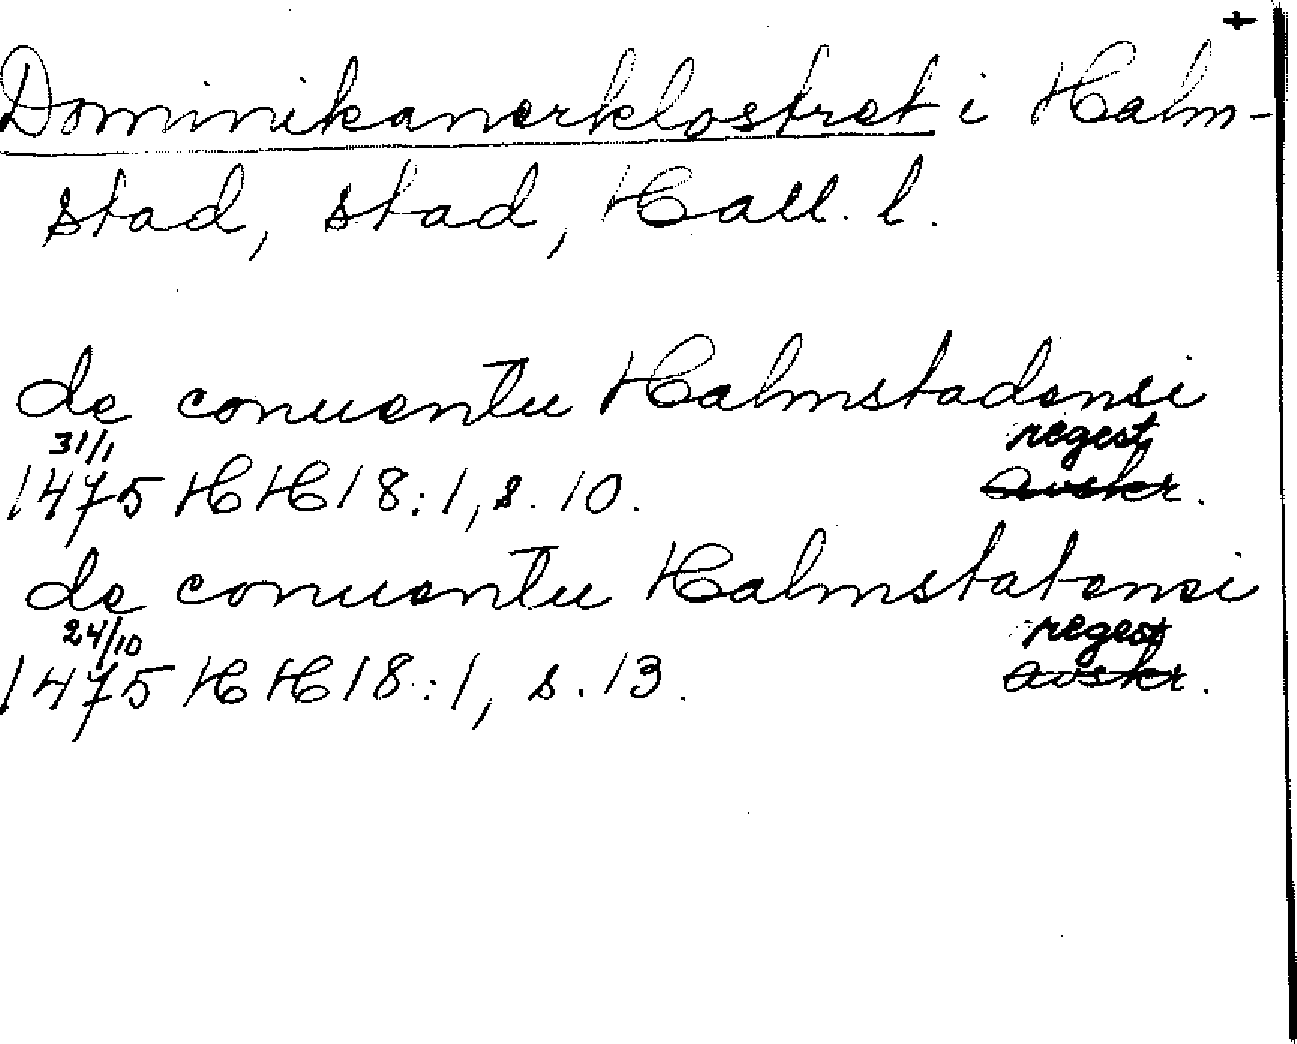 +
Dominikanerklostret i Halm-
stad, stad, Hall. l.
de conuentu Halmstadensi
31/1 regest
1475 HH 18:1, s. 10. avskr.
de conuentu Halmstatensi
24/10 regest
1475 HH 18:1, s. 13. avskr.